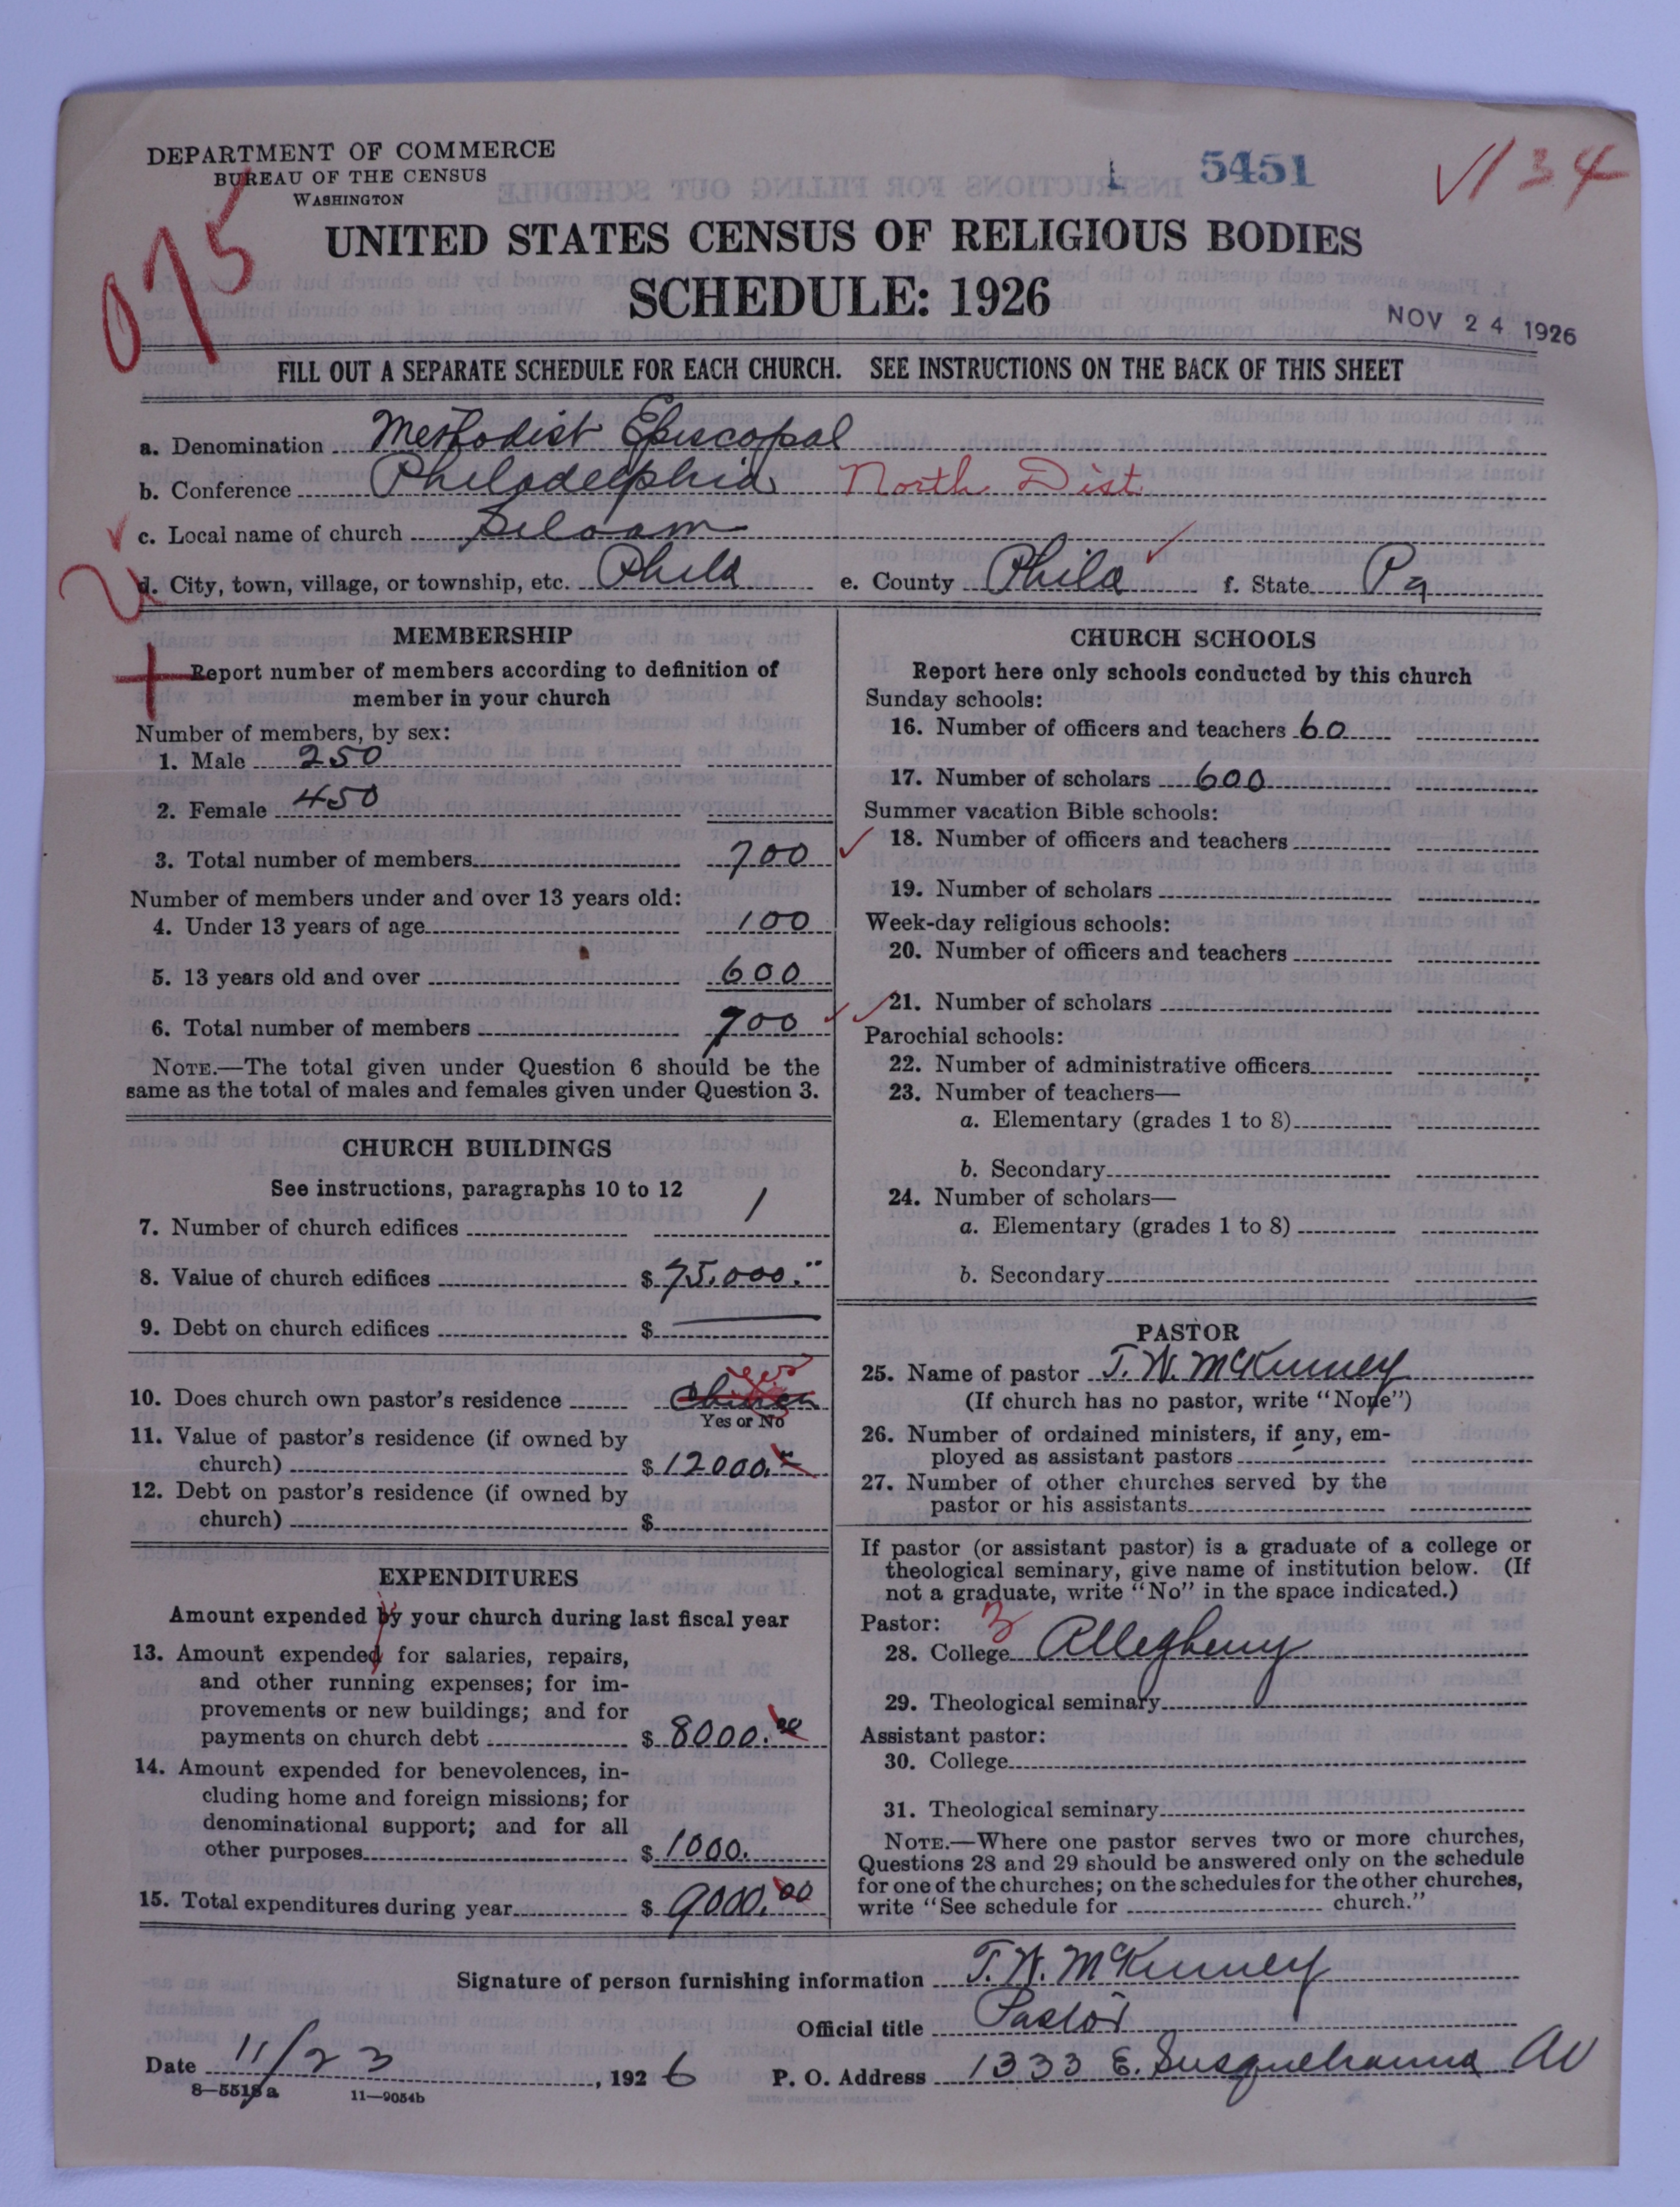 DEPARTMENT OF COMMERCE
BUREAU OF THE CENSUS
WASHINGTON
L 5451
134
075
UNITED STATES CENSUS OF RELIGIOUS BODIES
SCHEDULE: 1926
NOV 24 1926
FILL OUT A SEPARATE SCHEDULE FOR EACH CHURCH. SEE INSTRUCTIONS ON THE BACK OF THIS SHEET
a. Denomination Methodist Episcopal
b. Conference Philadelphia North Dist
c. Local name of church Siloam
d. City, town, village, or township, etc. Phila e. County Phila f. State Pa
MEMBERSHIP
Report number of members according to definition of
member in your church
Number of members, by sex:
1. Male 250
2. Female 450
3. Total number of members 700
Number of members under and over 13 years old:
4. Under 13 years of age 100
5. 13 years old and over 600
6. Total number of members 700
NOTE.—The total given under Question 6 should be the
same as the total of males and females given under Question 3.
CHURCH BUILDINGS
See instructions, paragraphs 10 to 12
7. Number of church edifices 1
8. Value of church edifices $ 75,000.
9. Debt on church edifices $
10. Does church own pastor's residence yes
Yes or No
11. Value of pastor's residence (if owned by
church) $ 12000.
12. Debt on pastor's residence (if owned by
church) $
EXPENDITURES
Amount expended by your church during last fiscal year
13. Amount expended for salaries, repairs,
and other running expenses; for im-
provements or new buildings; and for
payments on church debt $ 8000.00
14. Amount expended for benevolences, in-
cluding home and foreign missions; for
denominational support; and for all
other purposes $ 1000.
15. Total expenditures during year $ 9000.00
CHURCH SCHOOLS
Report here only schools conducted by this church
Sunday schools:
16. Number of officers and teachers 60
17. Number of scholars 600
Summer vacation Bible schools:
18. Number of officers and teachers
19. Number of scholars
Week-day religious schools:
20. Number of officers and teachers
21. Number of scholars
Parochial schools:
22. Number of administrative officers
23. Number of teachers—
a. Elementary (grades 1 to 8)
b. Secondary
24. Number of scholars—
a. Elementary (grades 1 to 8)
b. Secondary
PASTOR
25. Name of pastor T. W. McKinney
(If church has no pastor, write "None")
26. Number of ordained ministers, if any, em-
ployed as assistant pastors
27. Number of other churches served by the
pastor or his assistants
If pastor (or assistant pastor) is a graduate of a college or
theological seminary, give name of institution below. (If
not a graduate, write "No" in the space indicated.)
Pastor: 3
28. College Allegheny
29. Theological seminary
Assistant pastor:
30. College
31. Theological seminary
NOTE.—Where one pastor serves two or more churches,
Questions 28 and 29 should be answered only on the schedule
for one of the churches; on the schedules for the other churches,
write "See schedule for church."
Signature of person furnishing information T. W. McKinney
Official title Pastor
Date 11/23, 1926 P. O. Address 1333 E. Susquehanna Av
8—5518a 11—9054b